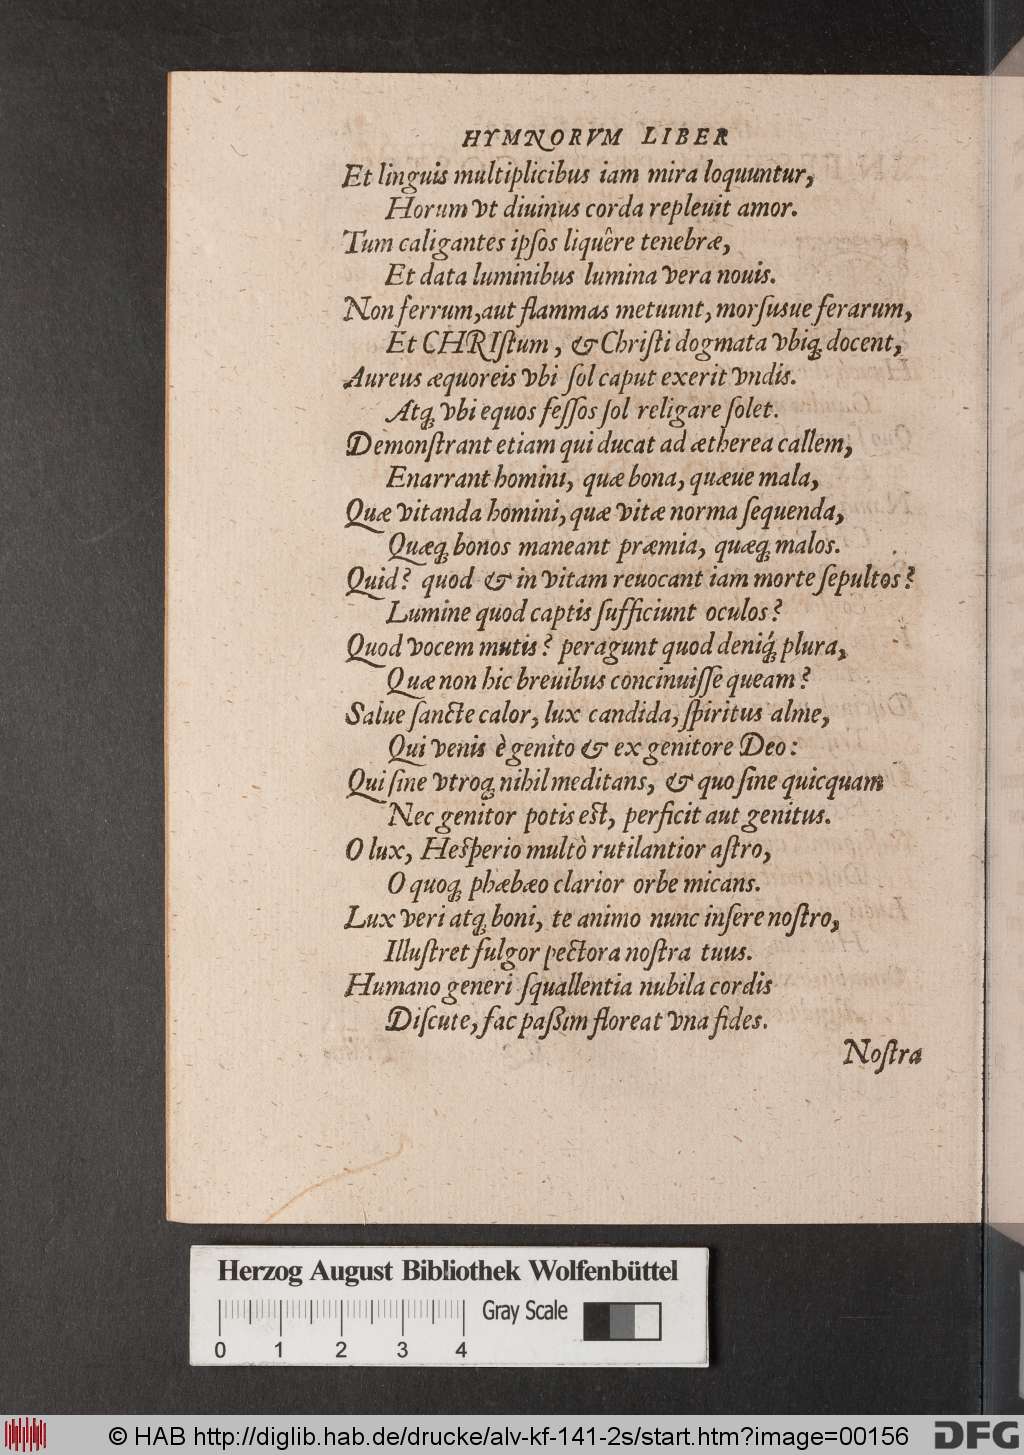 HYMNORVM LIBER
Et linguis multiplicibus iam mira loquuntur,
Horum vt diuinus corda repleuit amor.
Tum caligantes ipſos liquêre tenebræ,
Et data luminibus lumina vera nouis.
Non ferrum, aut flammas metuunt, morſusue ferarum,
Et CHRIſtum, & Chriſti dogmata vbiq́; docent,
Aureus æquoreis vbi ſol caput exerit vndis.
Atq́; vbi equos feſſos ſol religare ſolet.
Demonſtrant etiam qui ducat ad ætherea callem,
Enarrant homini, quæ bona, quæue mala,
Quæ vitanda homini, quæ vitæ norma ſequenda,
Quæq́; bonos maneant præmia, quæq́; malos.
Quid? quod & in vitam reuocant iam morte ſepultos?
Lumine quod captis ſufficiunt oculos?
Quod vocem mutis? peragunt quod deniq́; plura,
Quæ non hic breuibus concinuiſſe queam?
Salue ſancte calor, lux candida, ſpiritus alme,
Qui venis è genito & ex genitore Deo:
Qui ſine vtroq́; nihil meditans, & quo ſine quicquam
Nec genitor potis eſt, perficit aut genitus.
O lux, Heſperio multò rutilantior aſtro,
O quoq́; phæbæo clarior orbe micans.
Lux veri atq́; boni, te animo nunc inſere noſtro,
Illuſtret fulgor pectora noſtra tuus.
Humano generi ſquallentia nubila cordis
Diſcute, fac paßim floreat vna fides.
Noſtra
Herzog August Bibliothek Wolfenbüttel
Gray Scale
0 1 2 3 4
© HAB http://diglib.hab.de/drucke/alv-kf-141-2s/start.htm?image=00156
DFG